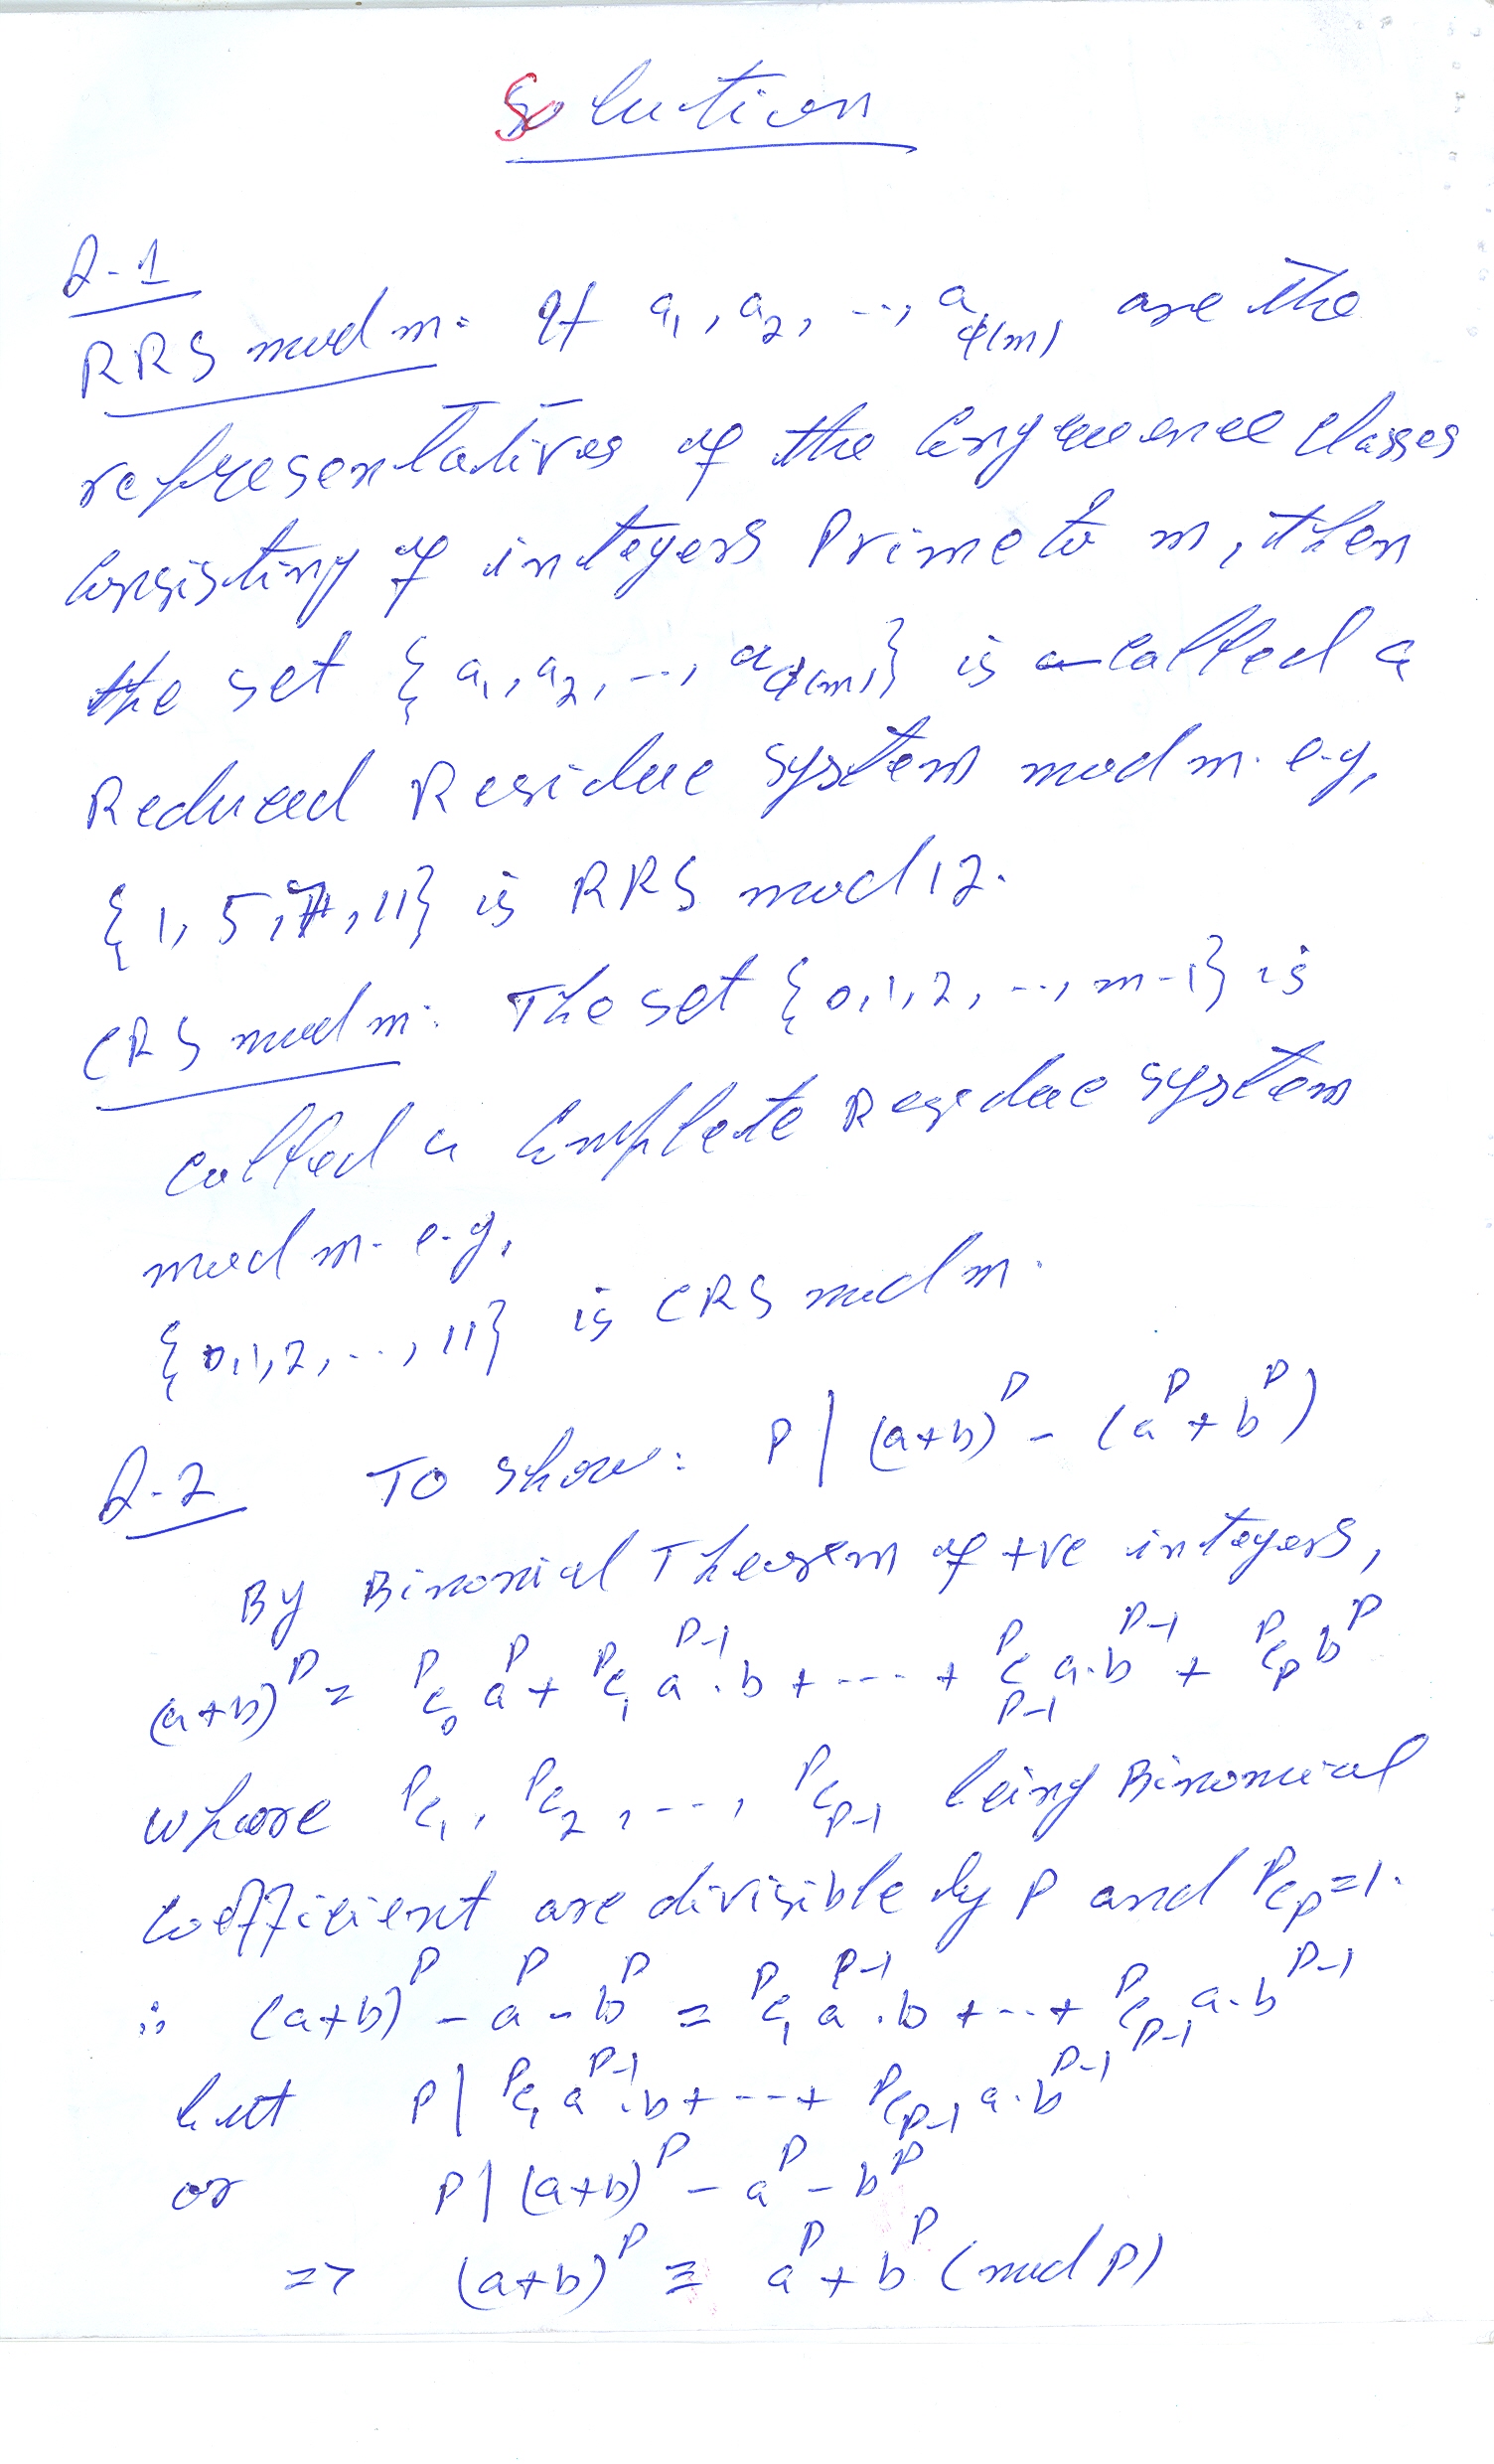 Solution
Q-1
RRS mod m: If a₁, a₂, ..., a_φ(m) are the
representatives of the Congruence Classes
Consisting of integers Prime to m, then
the set {a₁, a₂, ..., a_φ(m)} is called a
Reduced Residue system mod m. e.g,
{1, 5, 7, 11} is RRS mod 12.
CRS mod m: The set {0, 1, 2, ..., m-1} is
called a Complete Residue system
mod m. e.g,
{0, 1, 2, ..., 11} is CRS mod m.
Q-2 To show: P | (a+b)^P - (a^P + b^P)
By Binomial Theorem of +ve integers,
(a+b)^P = ^PC₀ a^P + ^PC₁ a^(P-1) . b + ---- + ^PC_(P-1) a.b^(P-1) + ^PC_P b^P
where ^PC₁, ^PC₂, ---, ^PC_(P-1) being Binomial
Coefficient are divisible by P and ^PC_P = 1.
∴ (a+b)^P - a^P - b^P = ^PC₁ a^(P-1) . b + --- + ^PC_(P-1) a.b^(P-1)
but P | ^PC₁ a^(P-1) . b + --- + ^PC_(P-1) a.b^(P-1)
or P | (a+b)^P - a^P - b^P
=> (a+b)^P ≡ a^P + b^P (mod P)